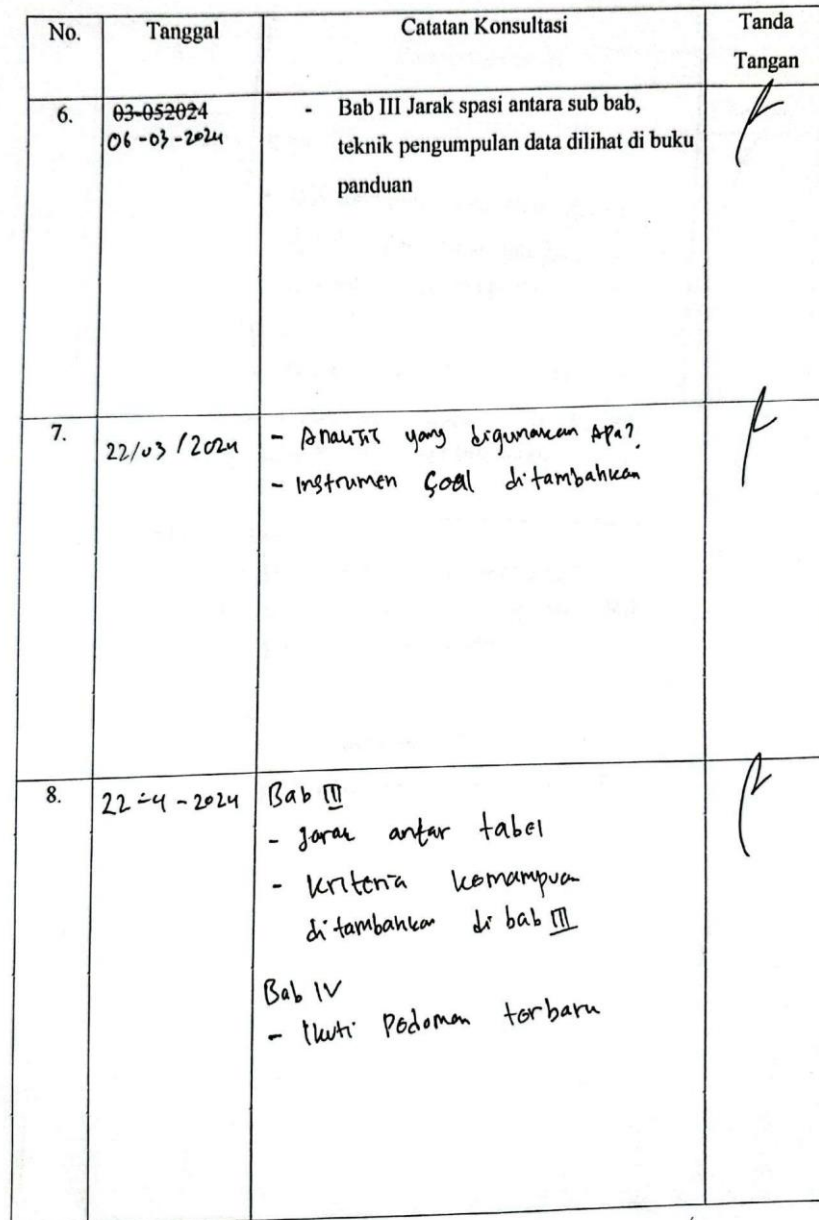 No. Tanggal Catatan Konsultasi Tanda Tangan
6. 03-052024
06-03-2024
- Bab III Jarak spasi antara sub bab,
teknik pengumpulan data dilihat di buku
panduan
7. 22/03/2024
- Analisis yang digunakan Apa?
- Instrumen Soal ditambahkan
8. 22-4-2024
Bab III
- Jarak antar tabel
- Kriteria kemampuan
ditambahkan di bab III
Bab IV
- Ikuti Pedoman terbaru